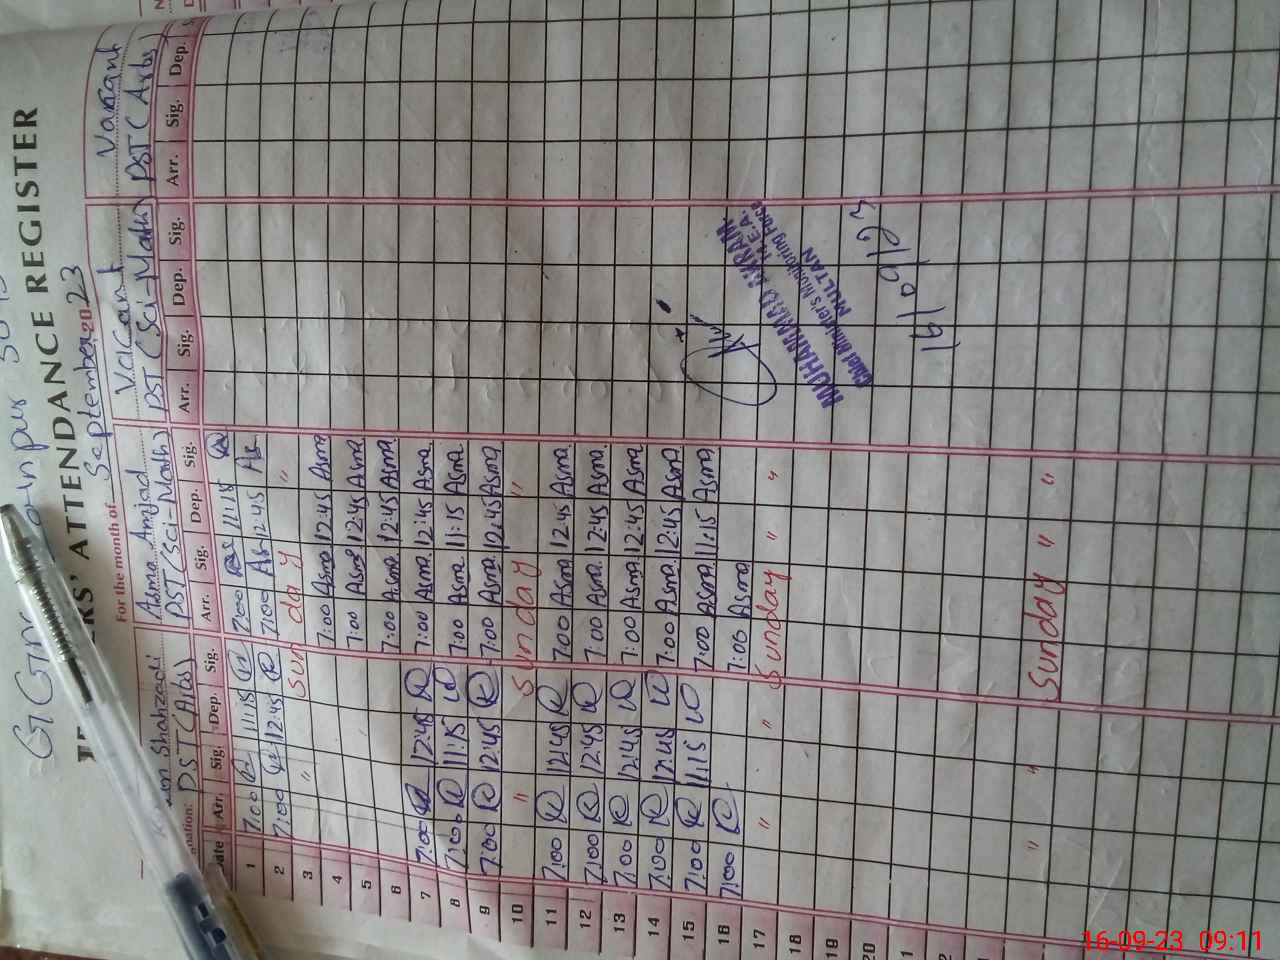 TEACHERS' ATTENDANCE REGISTER
For the month of September, 2023
Shahzadi Asma Amjad Vacant Vacant
PST (Arts) PST (Sci-Math) PST (Sci-Math) PST (Arts)
Date Arr. Sig. Dep. Sig. Arr. Sig. Dep. Sig. Arr. Sig. Dep. Sig. Arr. Sig. Dep.
1 7:00 11:15 7:00 11:15
2 7:00 12:45 7:00 As 12:45 As
3 " Sunday "
4 7:00 Asma 12:45 Asma
5 7:00 Asma 12:45 Asma
6 7:00 Asma 12:45 Asma
7 7:00 12:45 7:00 Asma 12:45 Asma
8 7:00 11:15 7:00 Asma 11:15 Asma
9 7:00 12:45 7:00 Asma 12:45 Asma
10 " Sunday "
11 7:00 12:45 7:00 Asma 12:45 Asma
12 7:00 12:45 7:00 Asma 12:45 Asma
13 7:00 12:45 7:00 Asma 12:45 Asma
14 7:00 12:45 7:00 Asma 12:45 Asma
15 7:00 11:15 7:00 Asma 11:15 Asma
16 7:00 7:00 Asma
17 " " Sunday " "
18
19
20
1
2
3
4
" " Sunday " "
MUHAMMAD AKRAM
M.E.A.
Chief Minister's Monitoring Force
MULTAN
16/09/23
16-09-23 09:11